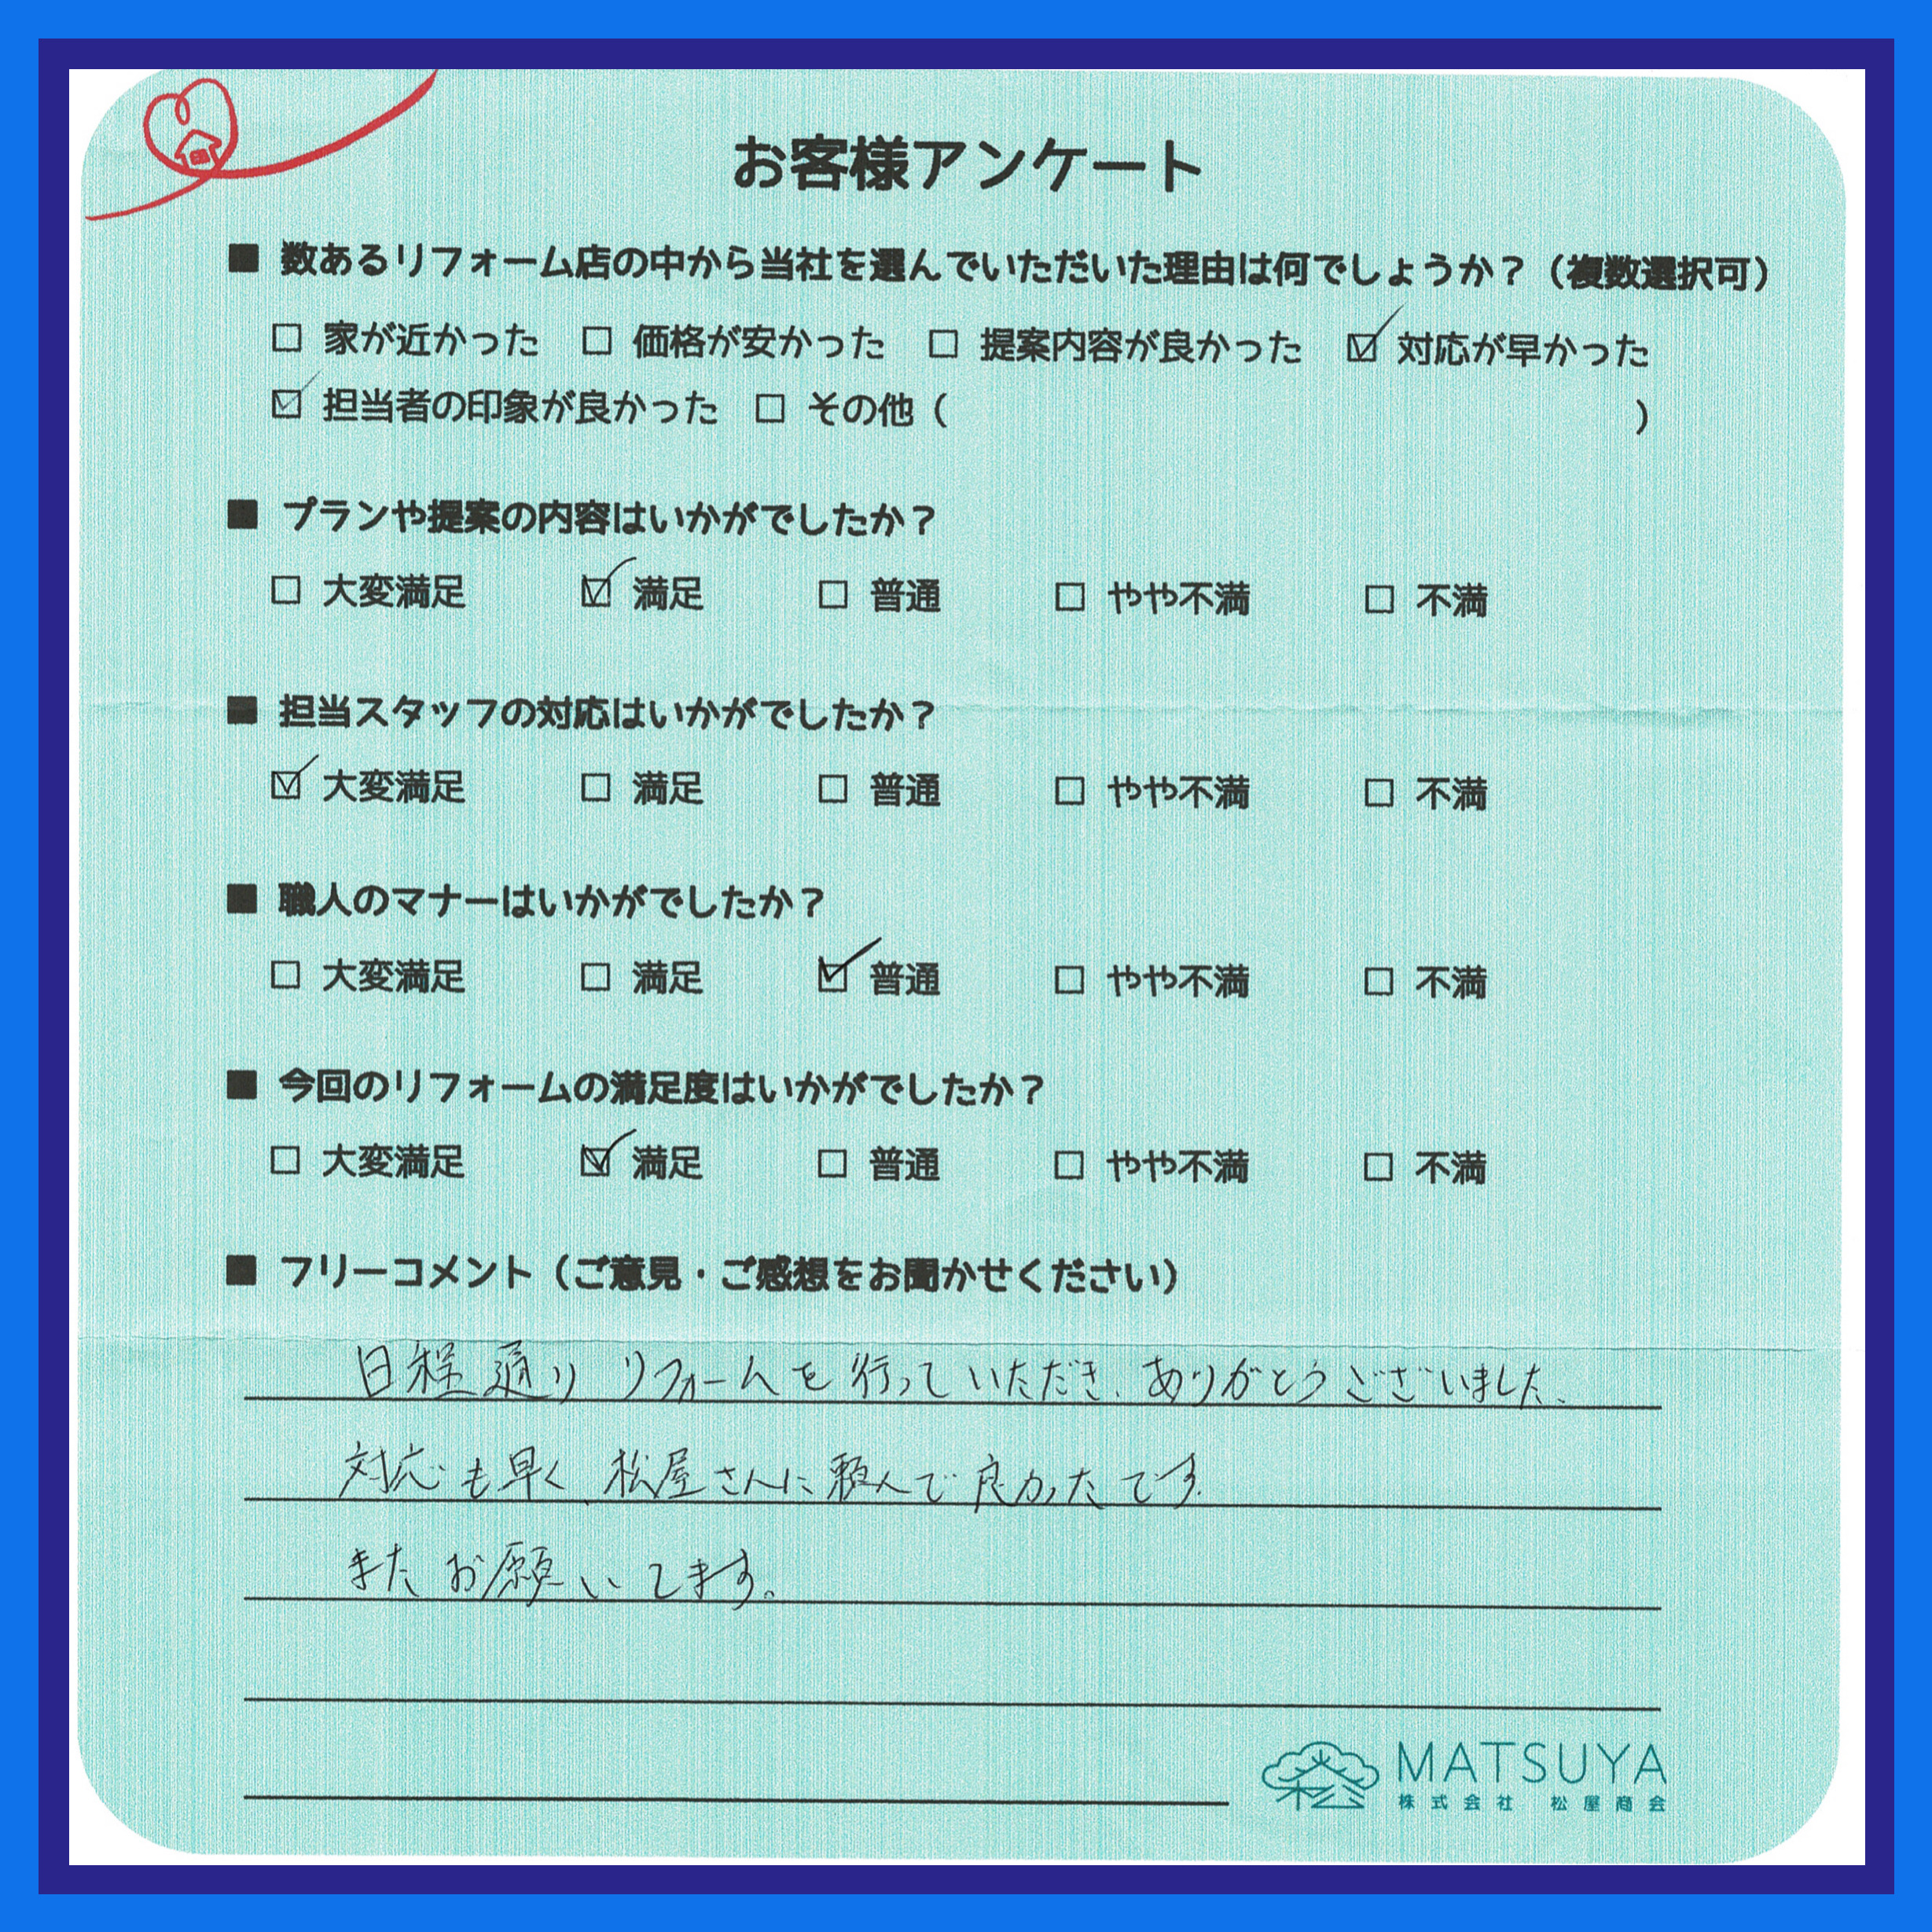 お客様アンケート
■ 数あるリフォーム店の中から当社を選んでいただいた理由は何でしょうか？（複数選択可）
□ 家が近かった □ 価格が安かった □ 提案内容が良かった ☑ 対応が早かった
☑ 担当者の印象が良かった □ その他（ ）
■ プランや提案の内容はいかがでしたか？
□ 大変満足 ☑ 満足 □ 普通 □ やや不満 □ 不満
■ 担当スタッフの対応はいかがでしたか？
☑ 大変満足 □ 満足 □ 普通 □ やや不満 □ 不満
■ 職人のマナーはいかがでしたか？
□ 大変満足 □ 満足 ☑ 普通 □ やや不満 □ 不満
■ 今回のリフォームの満足度はいかがでしたか？
□ 大変満足 ☑ 満足 □ 普通 □ やや不満 □ 不満
■ フリーコメント（ご意見・ご感想をお聞かせください）
日程通りリフォームを行っていただき、ありがとうございました、
対応も早く、松屋さんに頼んで良かったです.
またお願いします。
MATSUYA
株式会社 松屋商会